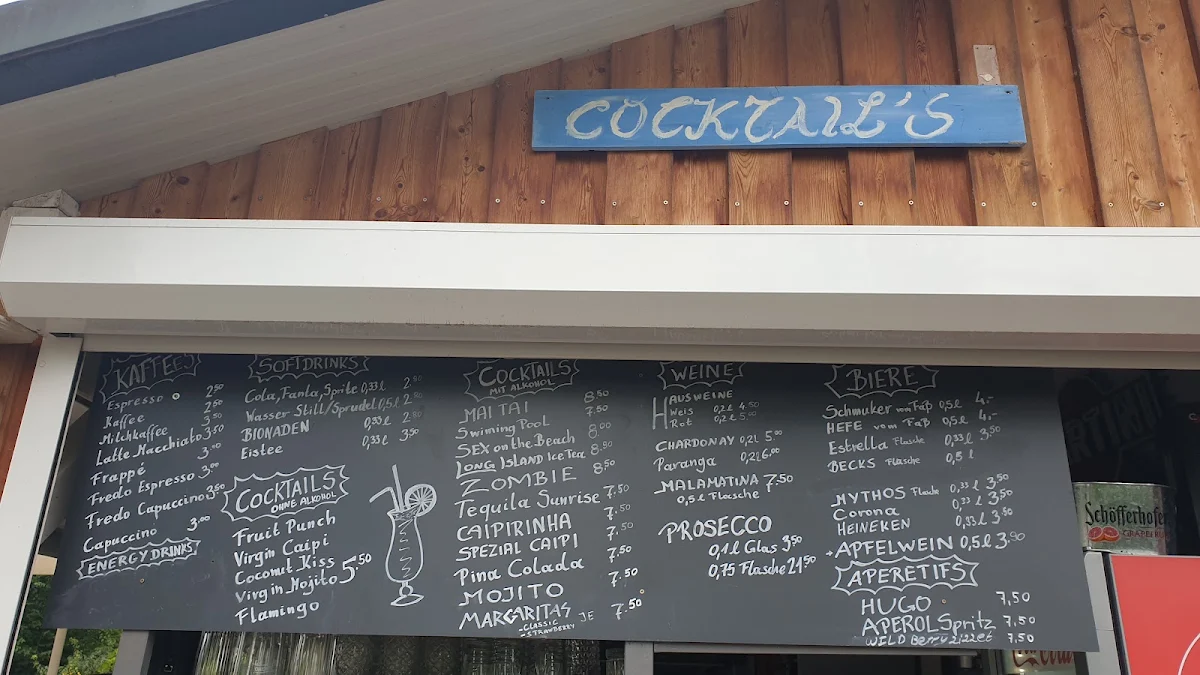 COCKTAIL'S
KAFFEES
Espresso 2⁵⁰
Kaffee 2⁵⁰
Milchkaffee 3⁵⁰
Latte Macchiato 3⁵⁰
Frappé
Fredo Espresso 3⁰⁰
Fredo Capuccino 3⁵⁰
Capuccino 3⁰⁰
ENERGY DRINKS
SOFTDRINKS
Cola, Fanta, Sprite 0,33 l
Wasser Still/Sprudel 0,5 l
BIONADEN 0,33 l
Eistee 0,33 l 3⁵⁰
COCKTAILS
OHNE ALKOHOL
Fruit Punch
Virgin Caipi
Coconut Kiss
Virgin Mojito 5⁵⁰
Flamingo
COCKTAILS
MIT ALKOHOL
MAI TAI 8,⁵⁰
Swiming Pool 7,⁵⁰
SEX on the Beach 8,⁰⁰
LONG ISLAND Ice Tea 8,⁵⁰
ZOMBIE 8,⁵⁰
Tequila Sunrise 7,⁵⁰
CAIPIRINHA 7,⁵⁰
SPEZIAL CAIPI 7,⁵⁰
Pina Colada 7,⁵⁰
MOJITO 7,⁵⁰
MARGARITAS JE 7,⁵⁰
-CLASSIC
-STRAWBERRY
WEINE
HAUSWEINE
Weis 0,2 l 4,⁵⁰
Rot 0,2 l
CHARDONAY 0,2 l 5⁰⁰
Paranga 0,2 l 6,⁰⁰
MALAMATINA 7,⁵⁰
0,5 l Flasche
PROSECCO
0,1 l Glas 3⁵⁰
0,75 Flasche 21⁵⁰
BIERE
Schmuker vom Faß 0,5 l 4,-
HEFE vom Faß 0,5 l 4,-
Estrella Flasche 0,33 l 3,⁵⁰
BECKS Flasche 0,5 l
MYTHOS Flasche 0,33 l 3,⁵⁰
Corona 0,33 l 3,⁵⁰
HEINEKEN 0,33 l 3,⁵⁰
APFELWEIN 0,5 l
APERETIFS
HUGO 7,50
APEROL Spritz 7,50
WILD Berry 7,50
Schöfferhofer
GRAPEFRUIT